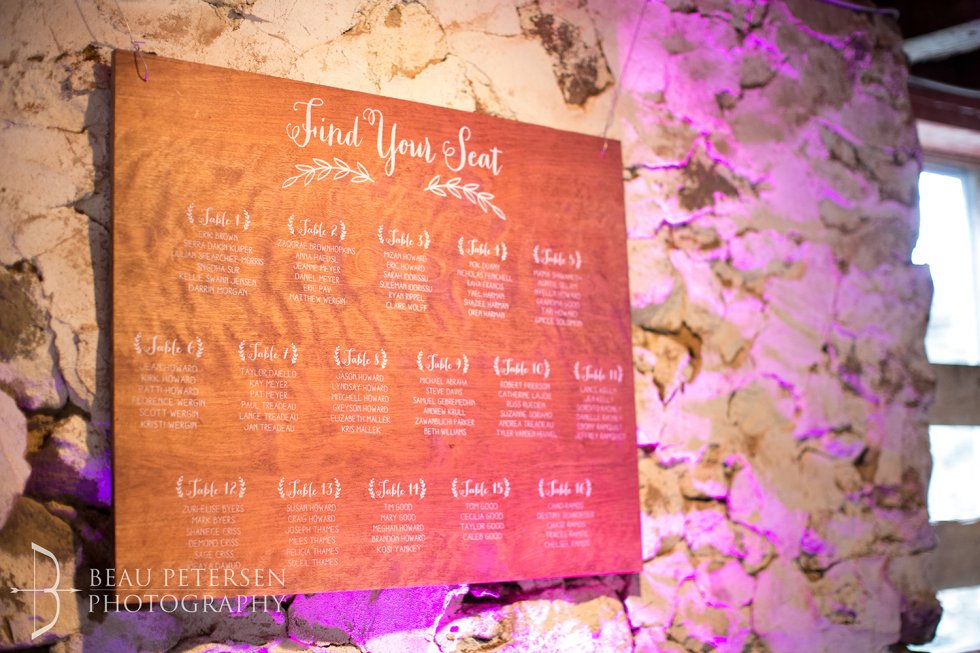 Find Your Seat
Table 1
ERIK BROWN
SIERRA DAKIN KUIPER
LILLIAN SPEARCHIEF-MORRIS
SNIGDHA SUR
KELLE SWANN JENSEN
DARRIN MORGAN
Table 2
ZAQORAE BROWNHOPKINS
ANNA HAEUSL
JEANNE MEYER
DANIEL MEYER
ERIC PAV
MATTHEW WERGIN
Table 3
MIZAN HOWARD
ERIC HOWARD
SARAH IDDRISSU
SULEMAN IDDRISSU
RYAN RIPPEL
CLAIRE WOLFF
Table 4
RON DUNNY
NICHOLAS FRINCHELL
KAHA FRANCIS
YAEL HARMAN
SHAZLEE HARMAN
OREN HARMAN
Table 5
HOWARD
HOWARD
UNCLE SOLOMON
Table 6
JEAN HOWARD
KIRK HOWARD
PATTI HOWARD
FLORENCE WERGIN
SCOTT WERGIN
KRISTI WERGIN
Table 7
TAYLOR DAIELLO
KAY MEYER
PAT MEYER
PAUL TREADEAU
LANCE TREADEAU
JAN TREADEAU
Table 8
JASON HOWARD
LYNDSAY HOWARD
MITCHELL HOWARD
GREYSON HOWARD
ELIZABETH MALLEK
KRIS MALLEK
Table 9
MICHAEL ABRAHA
STEVE DAVIS
SAMUEL GEBREMEDHIN
ANDREW KRULL
ZAWANBLICHI PARKER
BETH WILLIAMS
Table 10
ROBERT FRIERSON
CATHERINE LAJOIE
RUSS RUETEN
SUZANNE SORANO
ANDREA TREADEAU
TYLER VANDEN HEUVEL
Table 11
JEFFREY RAMQUIST
Table 12
ZURI-ELISE BYERS
MARK BYERS
SHANIECE CRISS
DEMOND CRISS
SAGE CRISS
Table 13
SUSAN HOWARD
CRAIG HOWARD
JOSEPH THAMES
MILES THAMES
FELICIA THAMES
SOLEIL THAMES
Table 14
TIM GOOD
MARY GOOD
MEGHAN HOWARD
BRANDON HOWARD
KOBI YANKEY
Table 15
TOM GOOD
CECILIA GOOD
TAYLOR GOOD
CALEB GOOD
Table 16
CARO RAMOS
DESTINY
RAMOS
RAMOS
CHELSEA RAMOS
BEAU PETERSEN
PHOTOGRAPHY